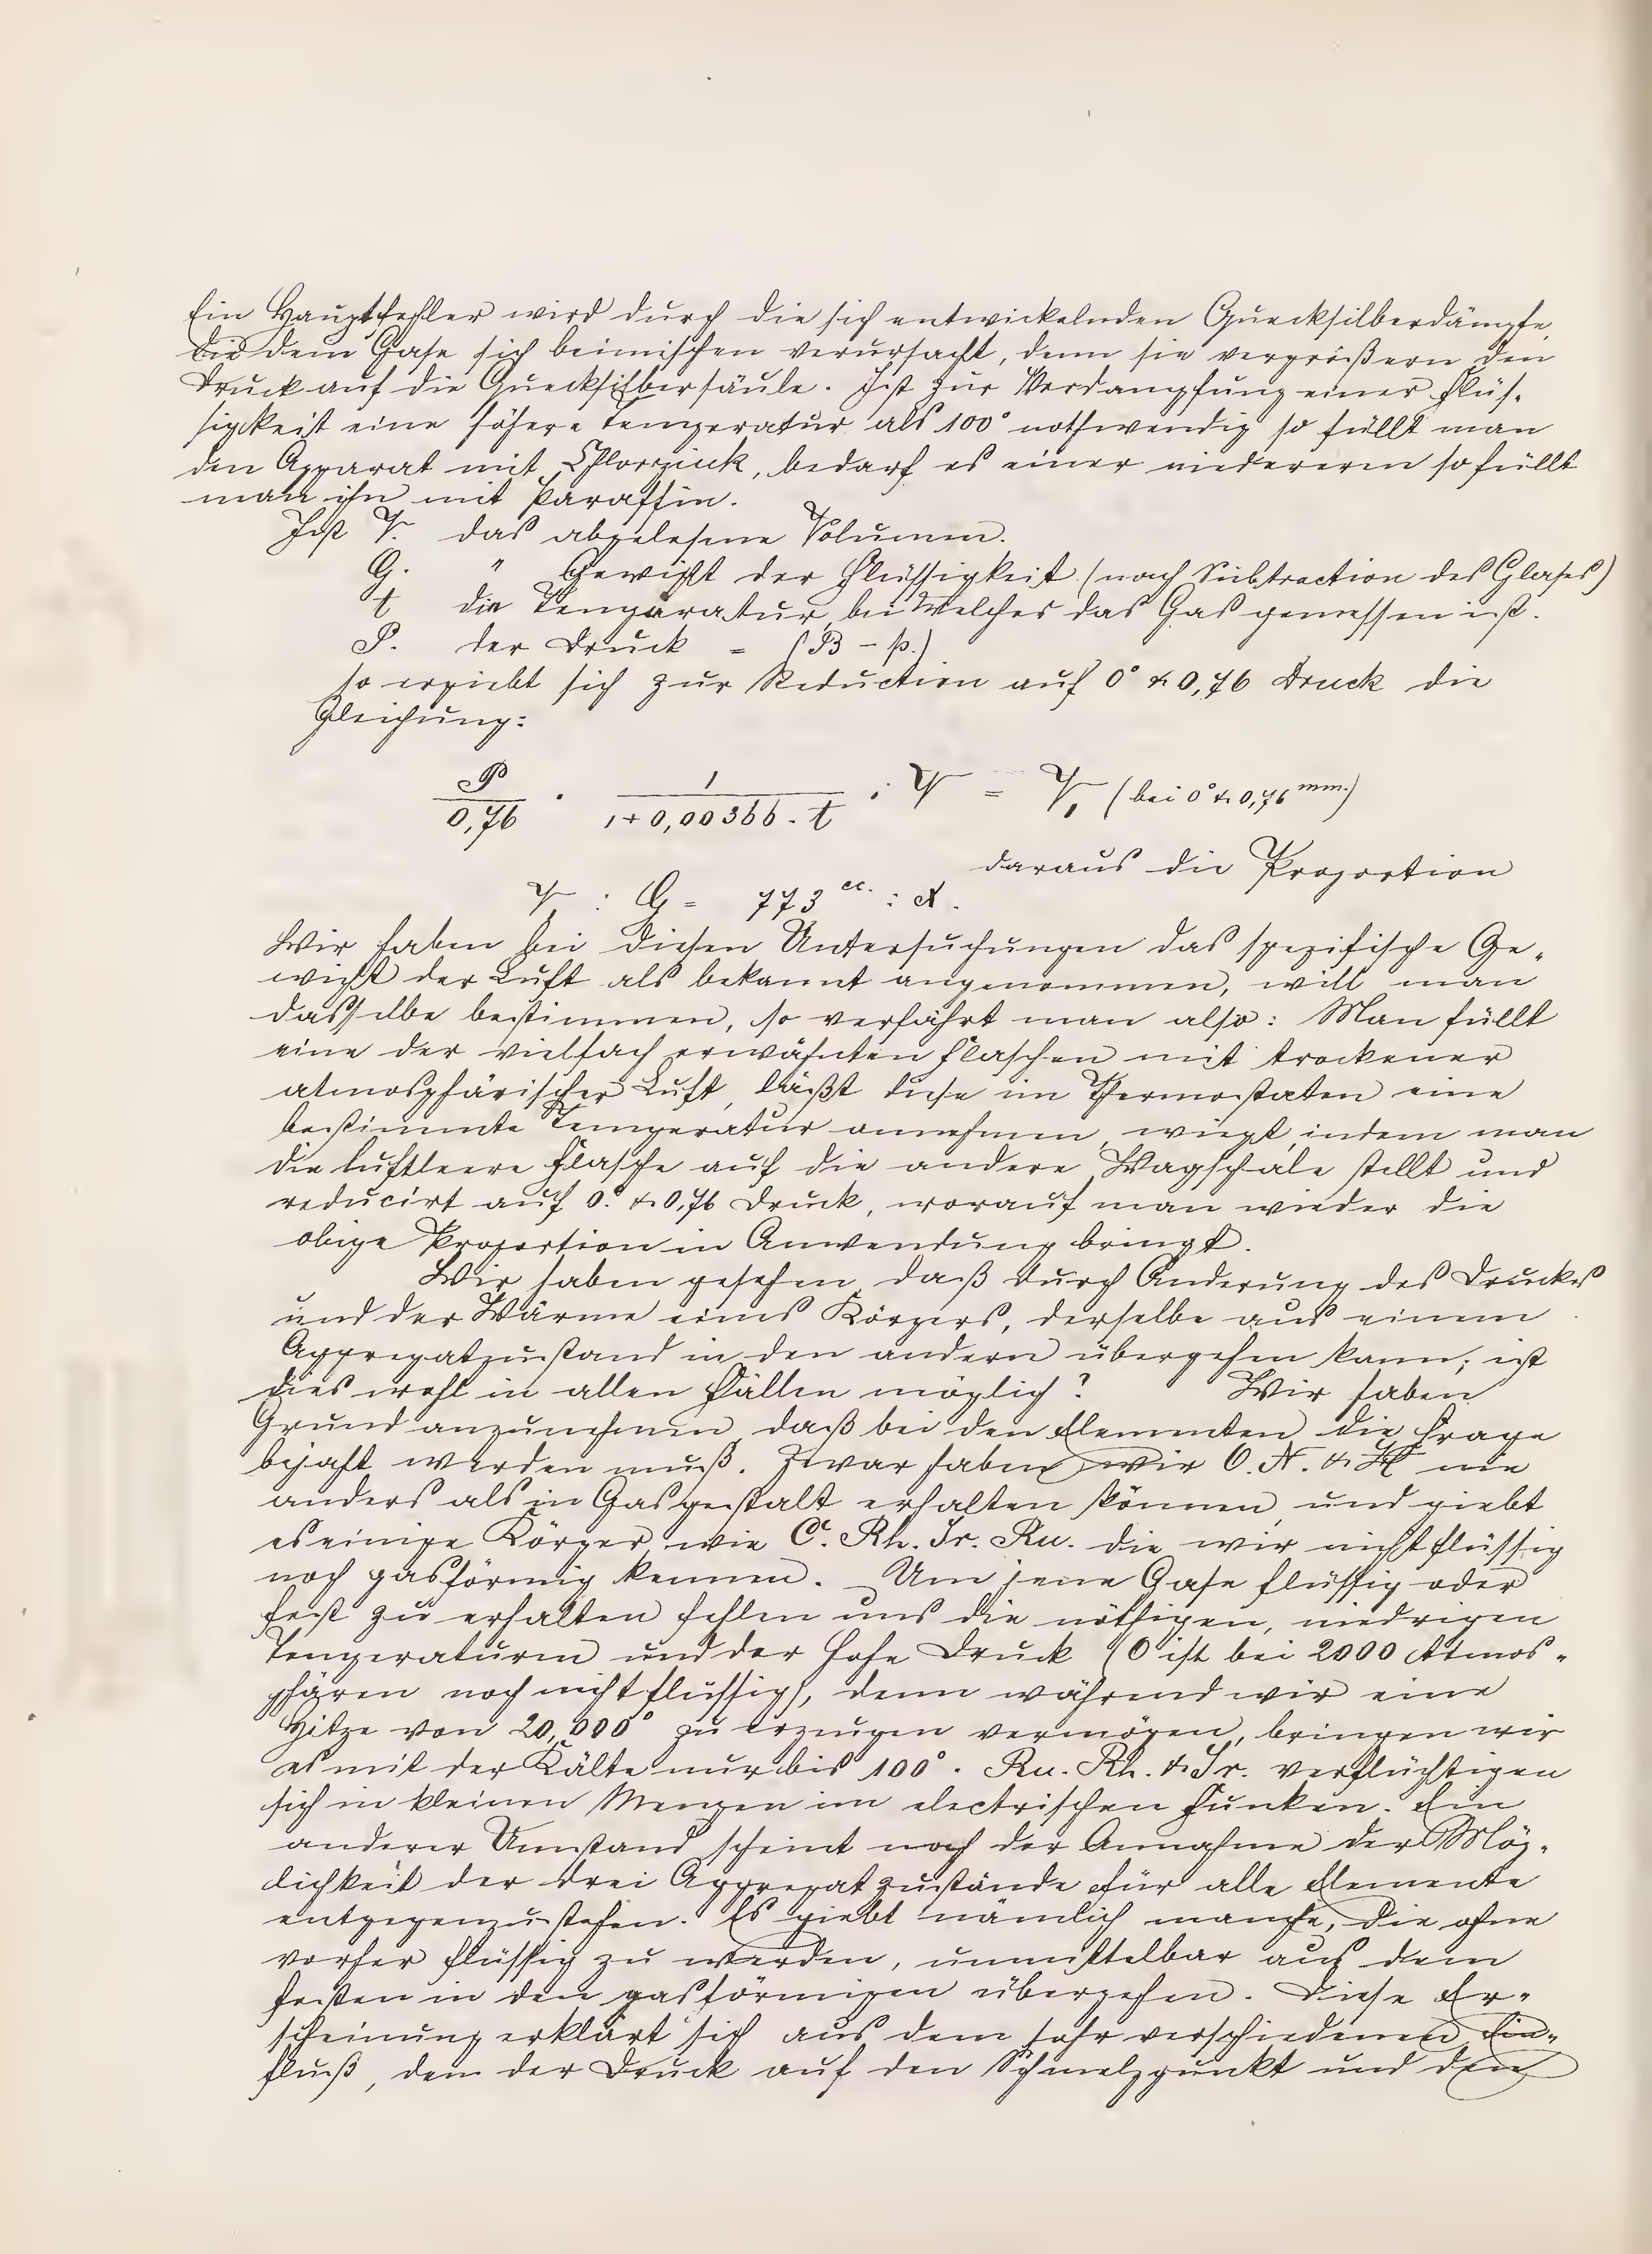 Ein Hauptfehler wird durch die sich entwickelnden Quecksilberdämpfe,
die dem Gase sich beimischen verursacht, denn sie vergrößern den
Druck auf die Quecksilbersäule. Ist zur Verdampfung einer Flüs-
sigkeit eine höhere Temperatur als 100° nothwendig so füllt man
den Apparat mit Chlorzink, bedarf es einer niedereren so füllt
man ihn mit Paraffin.
Ist V. das abgelesene Volumen.
G. " Gewicht der Flüssigkeit (nach Subtraction des Glases)
t die Temparatur bei Welcher das Gas gemessen ist.
P. der Druck = (B - p.)
so ergiebt sich zur Reduction auf 0° & 0,76 Druck die
Gleichung:
P/0,76 · 1/(1+0,00366 . t) : V = V, (bei 0° & 0,76 mm.)
daraus die Proportion
V, : G = 773 cc. : x.
Wir haben bei diesen Untersuchungen das spezifische Ge-
wicht der Luft als bekannt angenommen, will man
dasselbe bestimmen, so verfährt man also: Man füllt
eine der vielfach erwähnten Flaschen mit trockener
atmosphärischer Luft, läßt diese im Thermostaten eine
bestimmte Temperatur annehmen, wiegt, indem man
die luftleere Flasche auf die andere Wagschale stellt und
reducirt auf 0.° & 0,76 Druck, worauf man wieder die
obige Proportion in Anwendung bringt.
Wir haben gesehen, daß durch Änderung des Druckes
und der Wärme eines Körpers, derselbe aus einem
Aggregatzustand in den andern übergehen kann; ist
dies wohl in allen Fällen möglich? Wir haben
Grund anzunehmen, daß bei den Elementen die Frage
bejaht werden muß. Zwar haben wir O. N. & H nie
anders als in Gasgestalt erhalten können, und giebt
es einige Körper, wie C. Rh. Ir. Ru. die wir nicht flüssig
noch gasförmig kennen. Um jene Gase flüssig oder
fest zu erhalten fehlen uns die nöthigen, niedrigen
Temperaturen und der hohe Druck (O ist bei 2000 Atmos-
phären noch nicht flüssig), denn während wir eine
Hitze von 20,000° zu erzeugen vermögen, bringen wir
es mit der Kälte nur bis 100°. Ru. Rh. & Ir. verflüchtigen
sich in kleinen Mengen im electrischen Funken. Ein
anderer Umstand scheint noch der Annahme der Mög-
lichkeit der drei Aggregatzustände für alle Elemente
entgegenzustehen. Es giebt nämlich manche, die ohne
vorher flüssig zu werden, unmittelbar aus dem
festen in den gasförmigen übergehen. Diese Er-
scheinung erklärt sich aus dem sehr verschiedenen Ein-
fluß, den der Druck auf den Schmelzpunkt und den